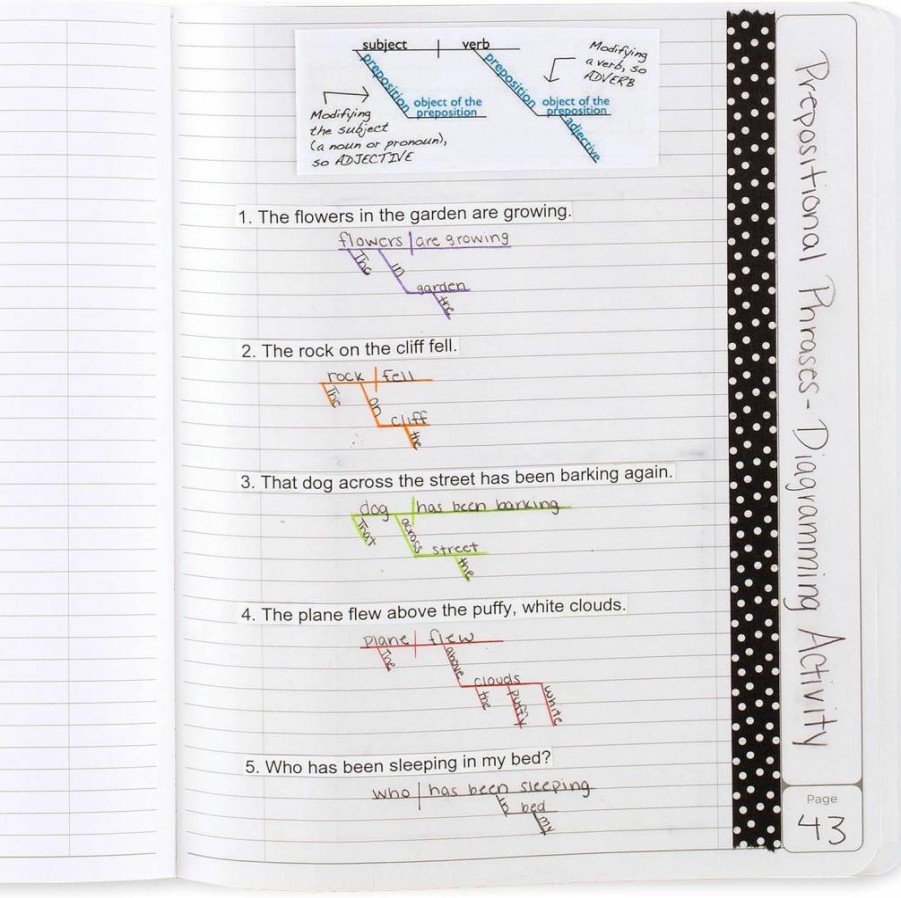 subject verb
preposition
object of the
preposition
Modifying
the subject
(a noun or pronoun),
so ADJECTIVE
preposition
object of the
preposition
adjective
Modifying
a verb, so
ADVERB
1. The flowers in the garden are growing.
flowers are growing
The in
garden
the
2. The rock on the cliff fell.
rock fell
The on
cliff
the
3. That dog across the street has been barking again.
dog has been barking
That across
street
the
4. The plane flew above the puffy, white clouds.
plane flew
The above
clouds
the puffy white
5. Who has been sleeping in my bed?
who has been sleeping
in bed
my
Prepositional Phrases - Diagramming Activity
Page
43